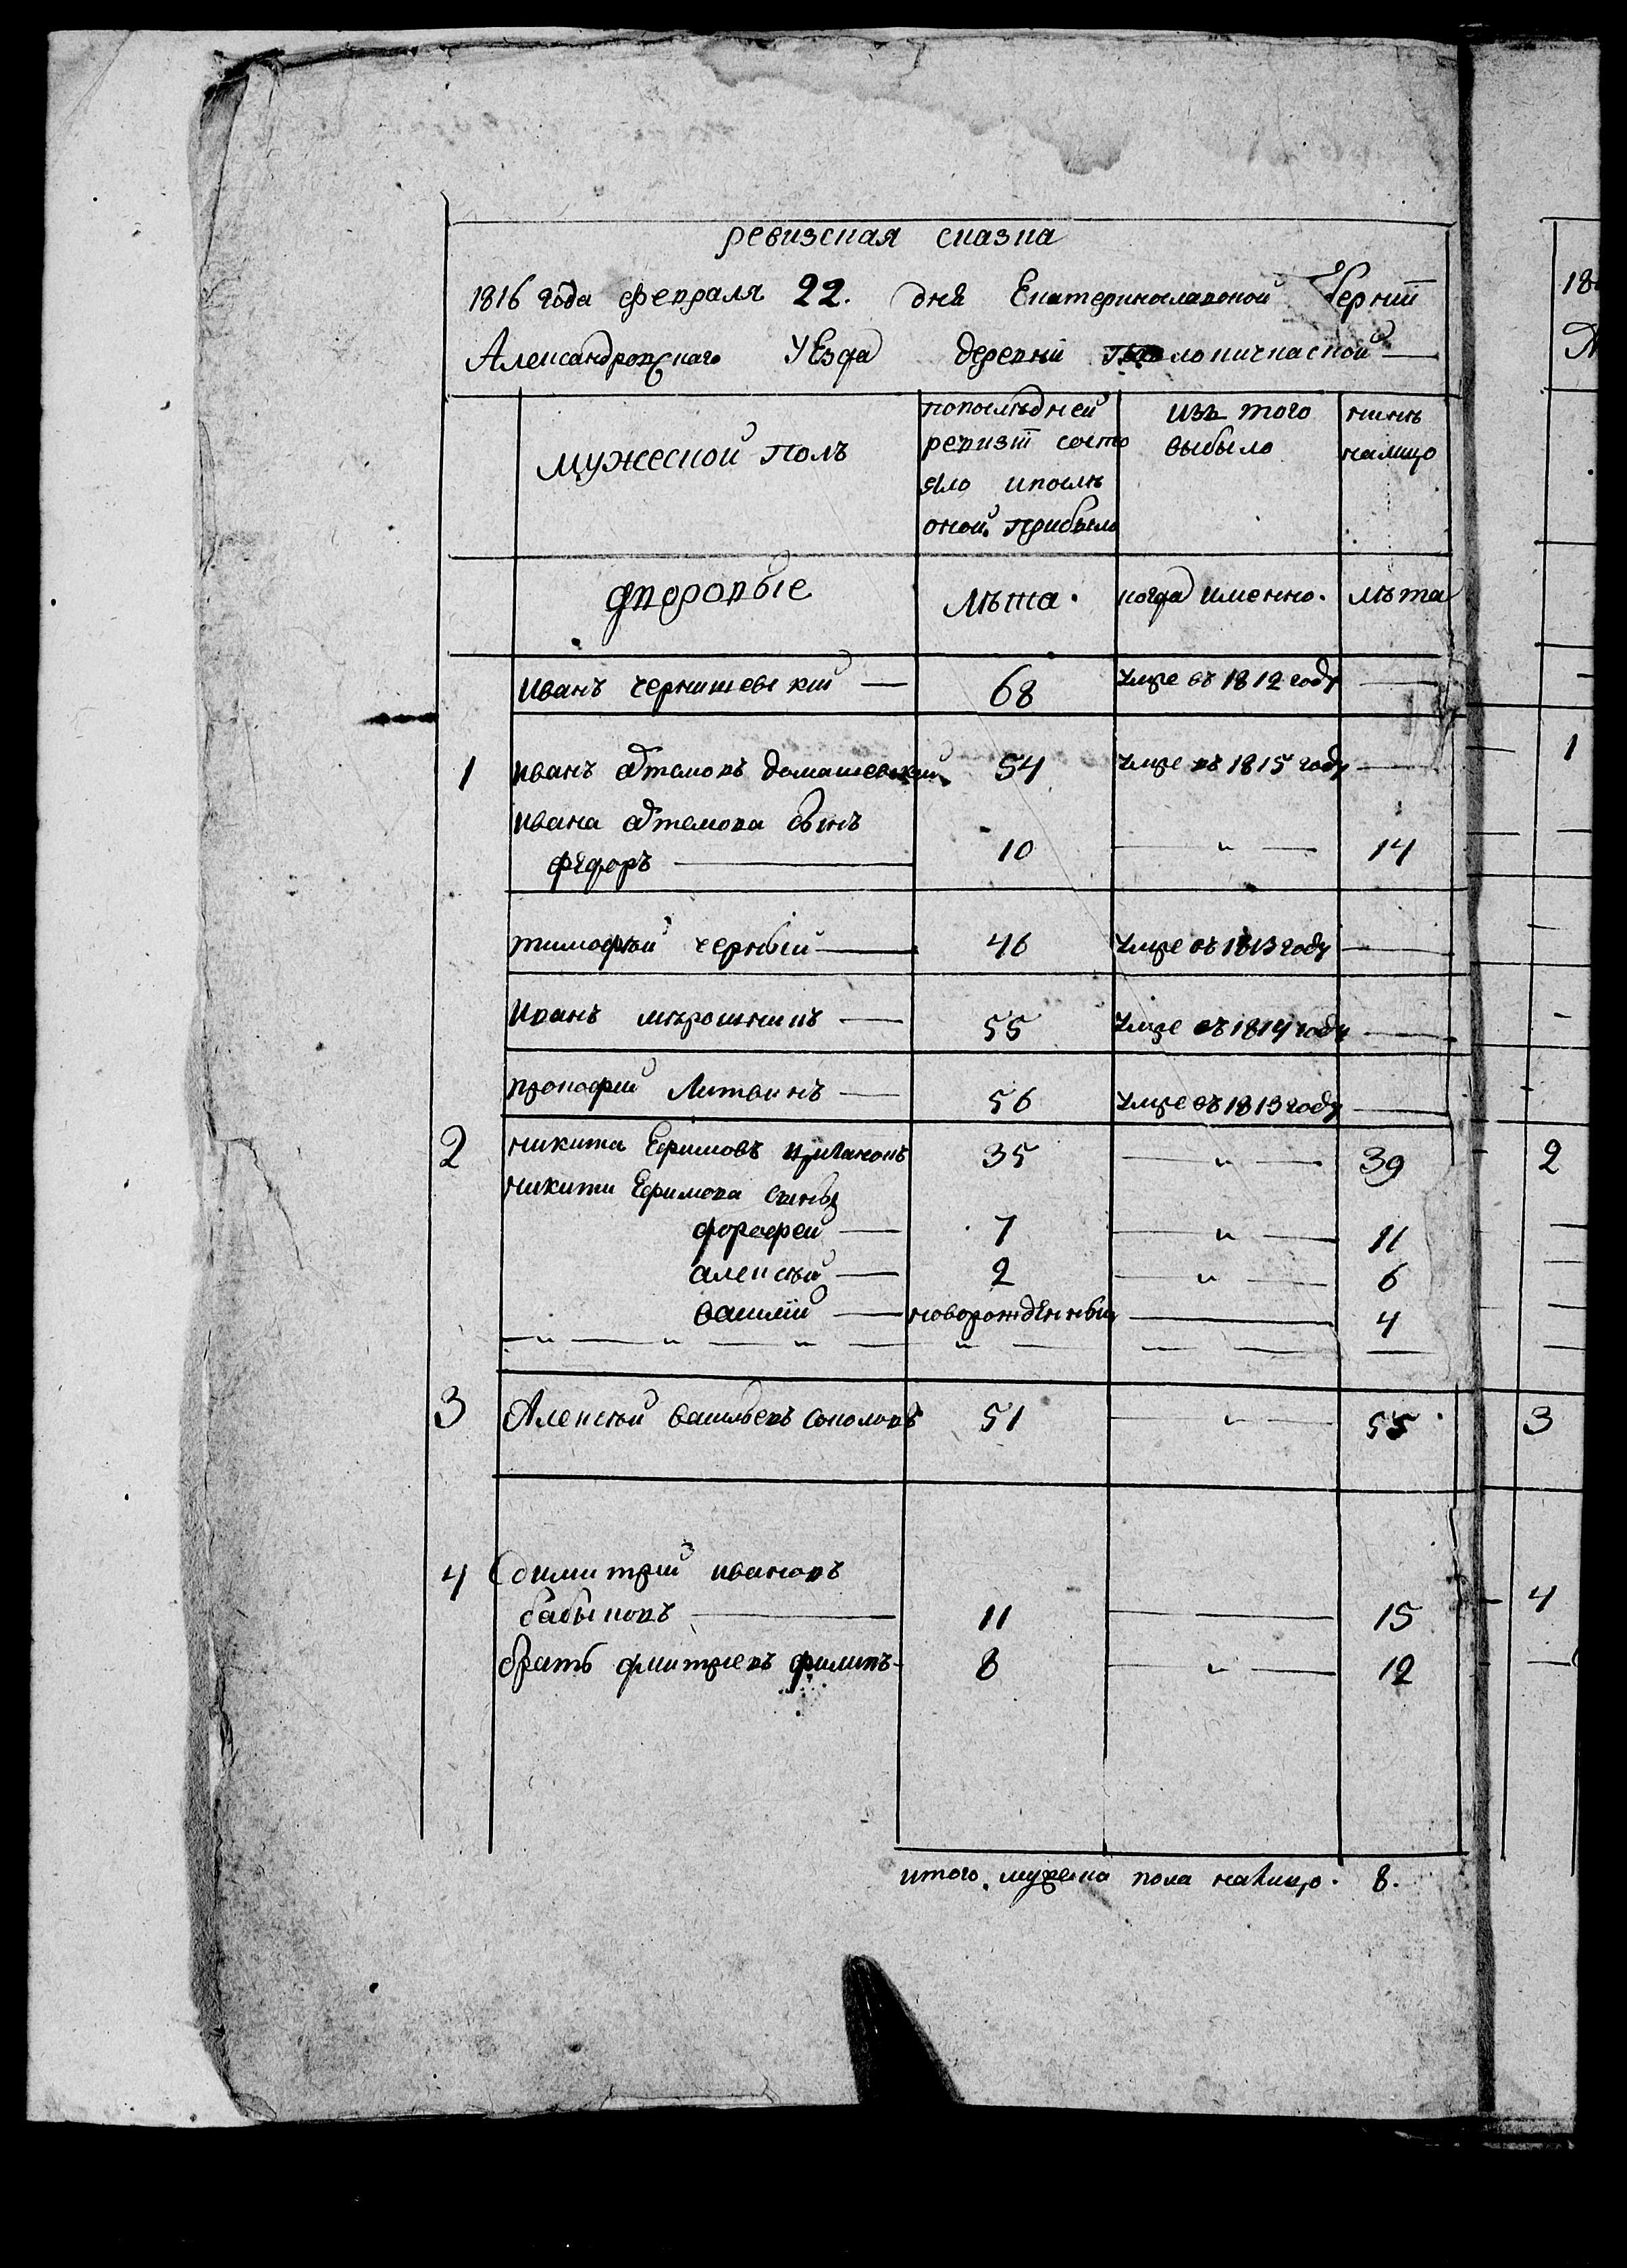 ревизская сказка
1816 года февраля 22. дня Екатеринославской Губерніи
Александровскаго уЕзда деревни
мужеской полъ
попослѣдней
ревизіи состо
яло ипослѣ
оной прибыло
изъ того
выбыло
нинѣ
налицо
дворовые
лѣта.
когда именно.
лѣта
иванъ чернишевский — 68 умре въ 1812 году —
1 иванъ Артемовъ домашевский 54 умре въ 1815 году —
ивана Артемова сынъ
федоръ — 10 — " — 14
тимофѣй черный — 46 умре въ 1813 году —
иванъ мирошникъ — 55 умре въ 1814 году —
прокофий Литвинъ — 56 умре въ 1813 году —
2 никита Ефимовъ 35 — " — 39
никити Ефимова сины
дорофей — 7 — " — 11
алексѣй — 2 — " — 6
василій — новорожденный — 4
3 Алексѣй васильевъ соколовъ 51 — " — 55
4 димитрий ивановъ
бабыковъ — 11 — 15
братъ дмитриевъ филипъ 8 — " — 12
итого мужеска пола налицо. 8.
18
1
2
3
4